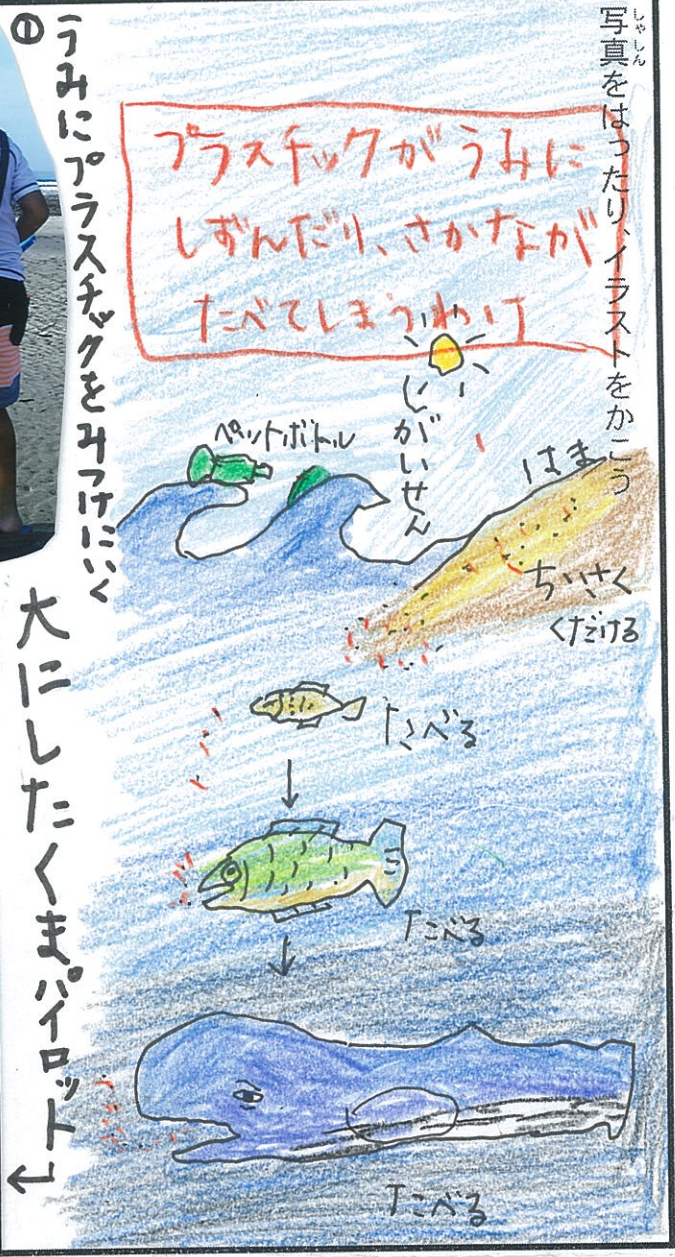 しゃしん
写真をはったり、イラストをかこう
プラスチックがうみに
しずんだり、さかなが
たべてしまうわけ
しがいせん
ペットボトル
はま
ちいさく
くだける
たべる
たべる
たべる
①うみにプラスチックをみつけにいく
大にしたくまパイロット